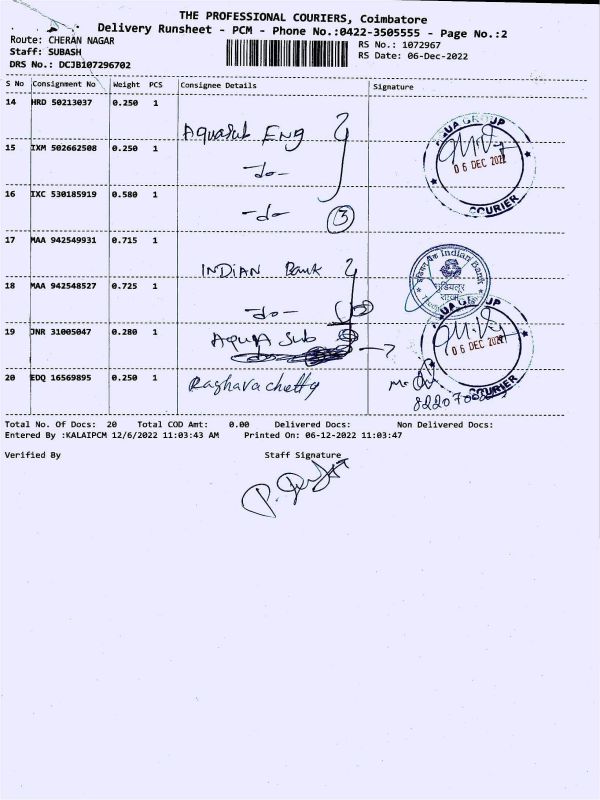 THE PROFESSIONAL COURIERS, Coimbatore
Delivery Runsheet - PCM - Phone No.:0422-3505555 - Page No.:2
Route: CHERAN NAGAR
RS No.: 1072967
Staff: SUBASH
RS Date: 06-Dec-2022
DRS No.: DCJB107296702
S No Consignment No Weight PCS Consignee Details Signature
14 HRD 50213037 0.250 1
Aquasub Eng
15 IXM 502662508 0.250 1
-do-
16 IXC 530185919 0.580 1
-do- 3
AQUA GROUP
06 DEC 2022
COURIER
17 MAA 942549931 0.715 1
INDIAN Bank
Indian Bank
18 MAA 942548527 0.725 1
-do-
19 JNR 31005047 0.280 1
AQUA Sub
AQUA GROUP
06 DEC 2022
COURIER
20 EDQ 16569895 0.250 1
Raghavachetty
Total No. Of Docs: 20 Total COD Amt: 0.00 Delivered Docs: Non Delivered Docs:
Entered By :KALAIPCM 12/6/2022 11:03:43 AM Printed On: 06-12-2022 11:03:47
Verified By Staff Signature